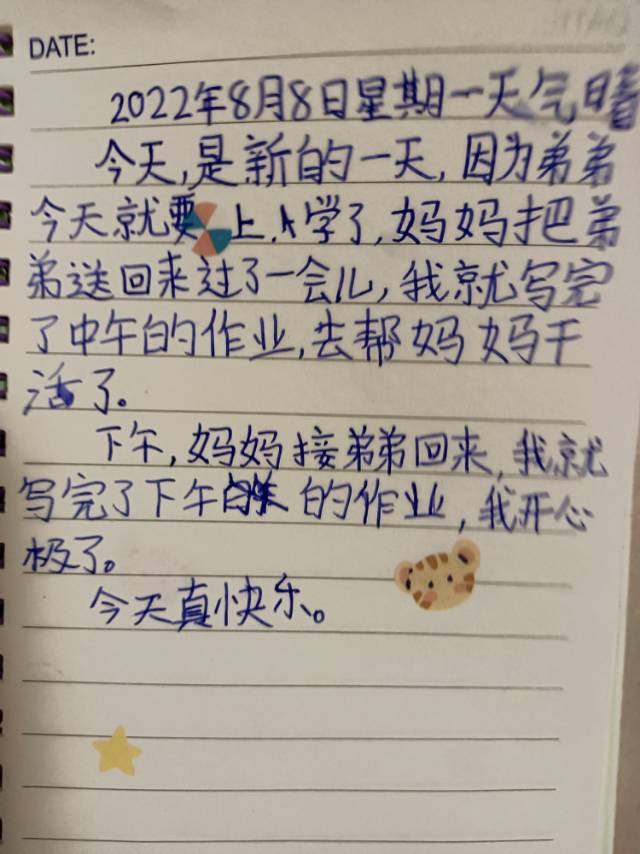 DATE:
2022年8月8日星期一天气晴
今天,是新的一天,因为弟弟
今天就要上学了,妈妈把弟
弟送回来过了一会儿,我就写完
了中午的作业,去帮妈妈干
活了。
下午,妈妈接弟弟回来,我就
写完了下午的作业,我开心
极了。
今天真快乐。